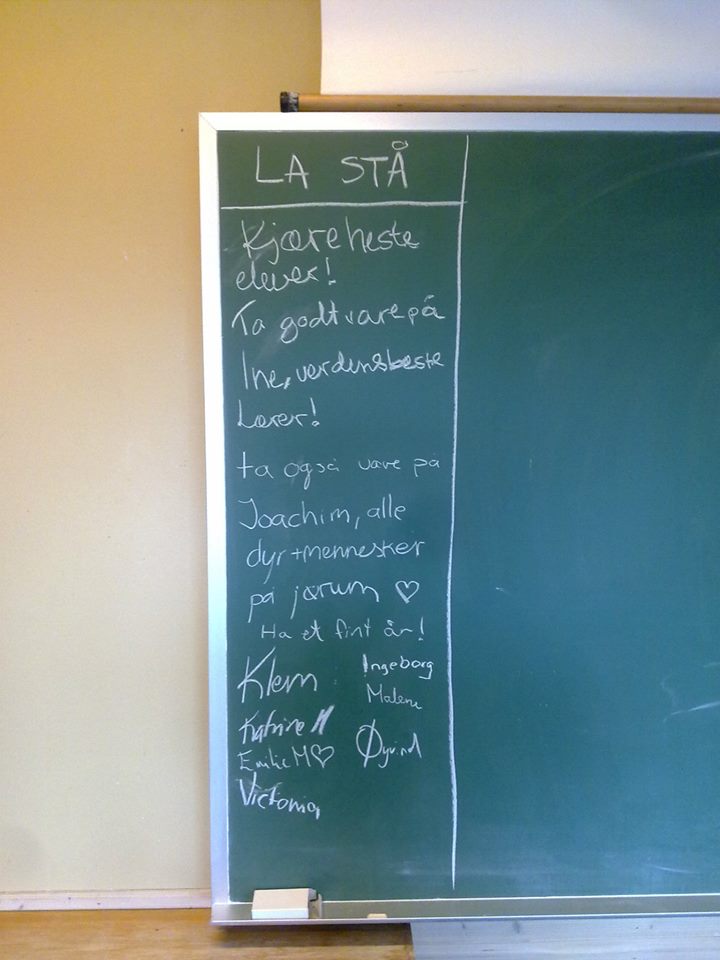 LA STÅ
Kjære heste
elever!
Ta godt vare på
Ine, verdensbeste
Lærer!
ta også vare på
Joachim, alle
dyr + mennesker
på jærum ♡
Ha et fint år!
Klem
Ingeborg
Malene
Katrine H
Emilie M♡
Øyvind
Victoria